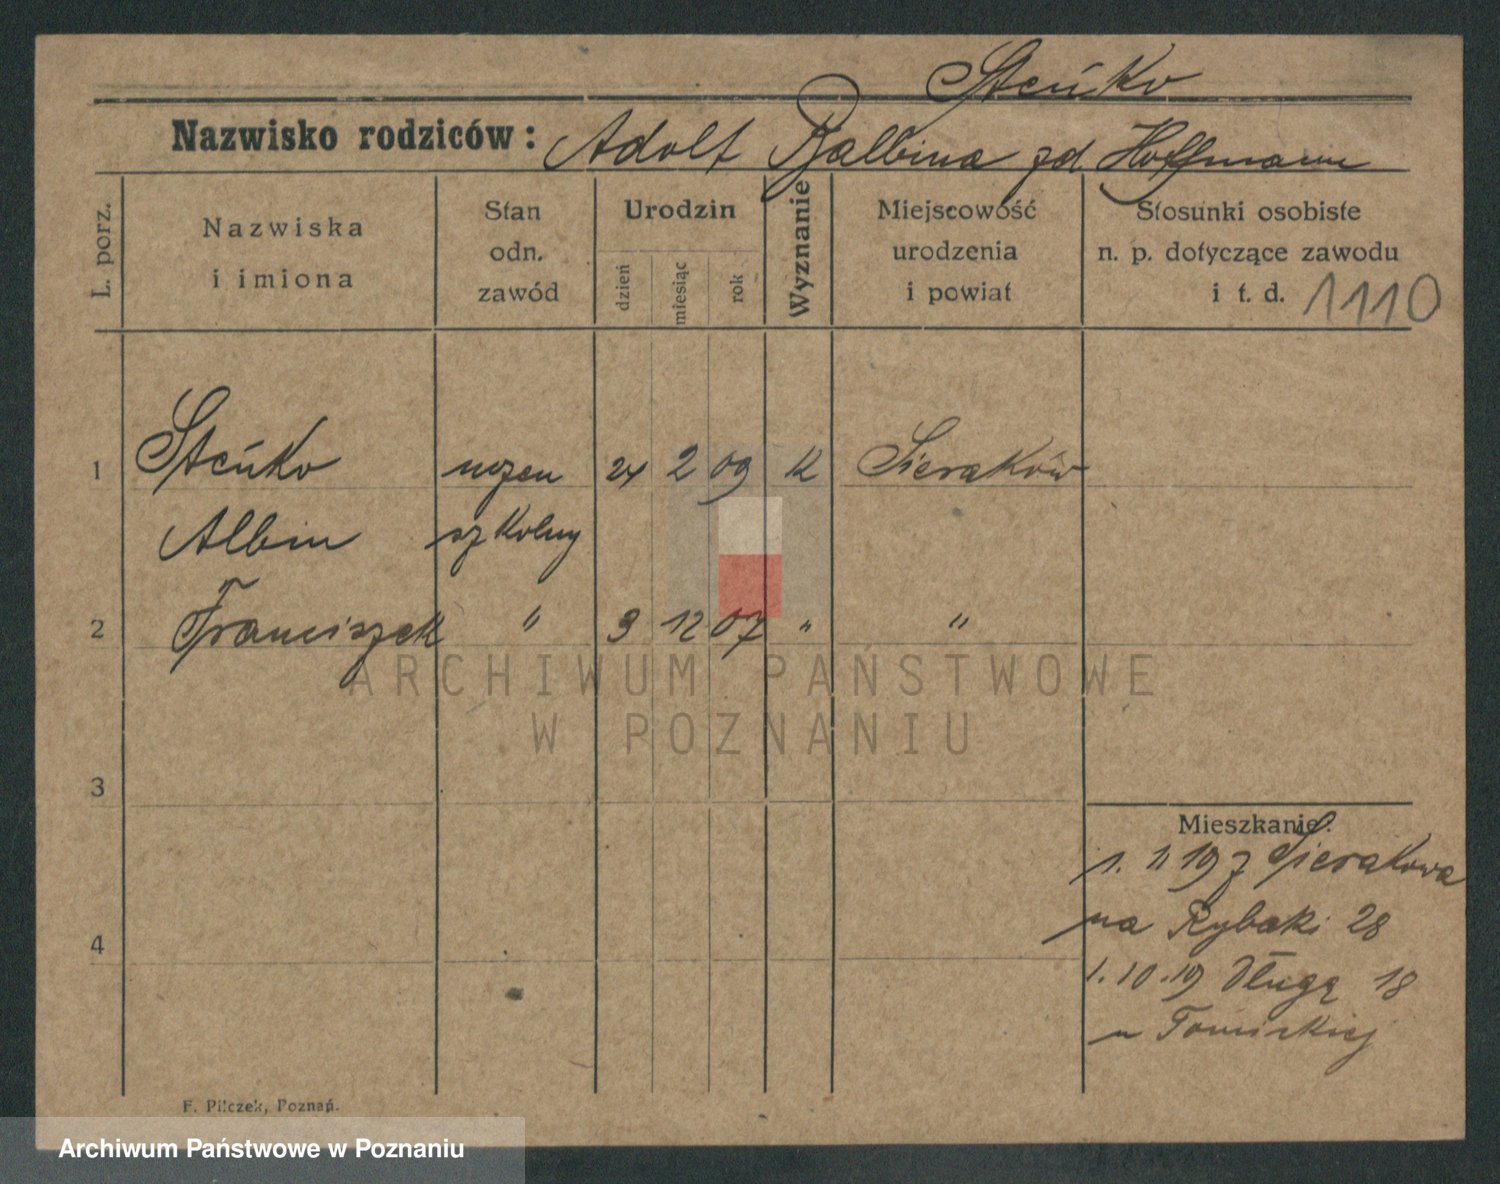 Steńko
Nazwisko rodziców: Adolf Balbina zd Hoffmann
L. porz.
Nazwiska
i imiona
Stan
odn.
zawód
Urodzin
dzień
miesiąc
rok
Wyznanie
Miejscowość
urodzenia
i powiat
Stosunki osobiste
n. p. dotyczące zawodu
i t. d. 1110
1 Steńko uczeń 24 2 09 K Sieraków
Albin szkolny
2 Franciszek " 3 12 07 " "
3
4
Mieszkanie:
1. 19 z Sierakowa
na Rybaki 28
1.10.19 Długą 18
u Tomickiej
F. Pilczek, Poznań.
ARCHIWUM PAŃSTWOWE
W POZNANIU
Archiwum Państwowe w Poznaniu